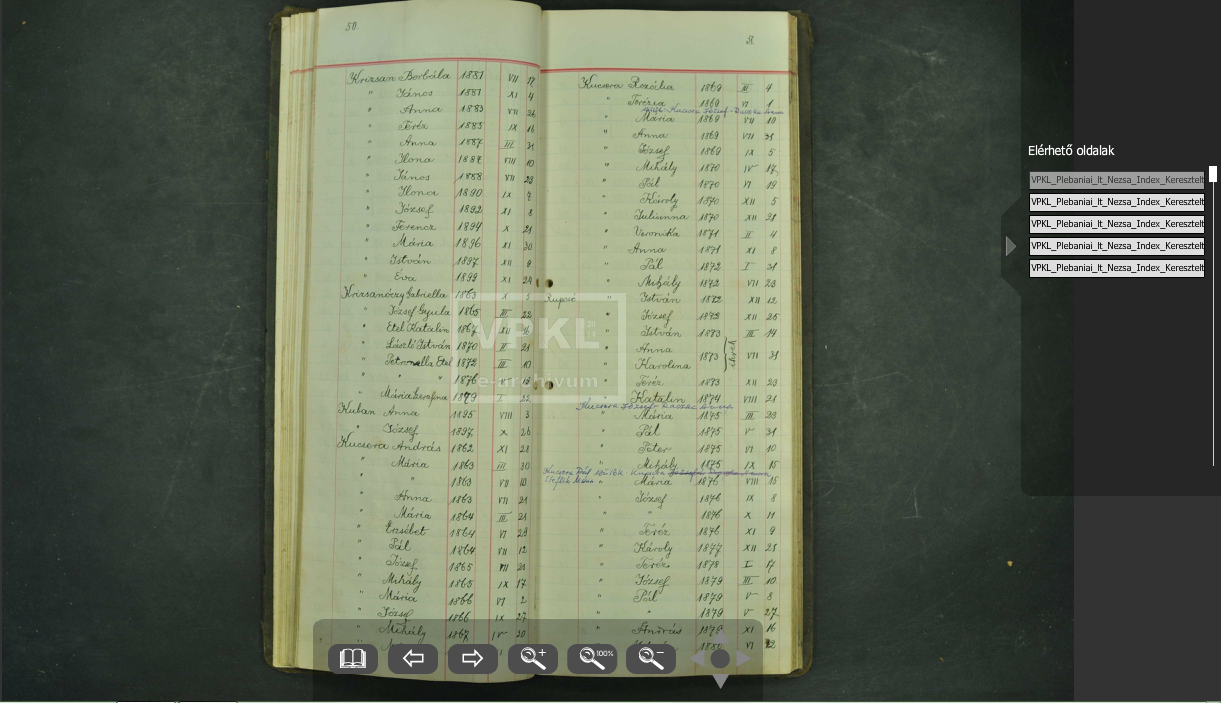 50
Krizsan Borbála 1881 VII 17
" János 1881 XI 4
" Anna 1883 VII 26
" Teréz 1885 IX 16
" Anna 1887 III 31
" Ilona 1887 VIII 10
" János 1888 VII 29
" Ilona 1890 IX 4
" József 1892 XI 8
" Ferencz 1894 X 21
" Mária 1896 XI 30
" István 1897 XII 9
" Éva 1899 XI 24
Krizsanóczy Gabriella 1863 X 5
" József Gyula 1865 III 22
" Etel Katalin 1867 XII 16
" László István 1870 II 21
" Petronella Etel 1872 III 10
" " 1876 V
" Mária Serafina 1879 I 22
Kuban Anna 1895 VIII 3
" József 1897 X 26
Kucsora András 1862 XI 28
" Mária 1863 III 30
" " 1863 VII 10
" Anna 1863 VII 21
" Mária 1864 III 21
" Erzsébet 1864 VI 28
" Pál 1864 VII 12
" József 1865 VII 21
" Mihály 1865 IX 17
" Mária 1866 VI 2
" József 1866 IX 27
" Mihály 1867 IV 20
51
Kucsora Rozália 1869 III 4
" Terézia 1869 VI 1
Kucsora József
" Mária 1869 VII 10
" Anna 1869 VII 31
" József 1869 IX 5
" Mihály 1870 IV 17
" Pál 1870 VI 19
" Károly 1870 XII 5
" Julianna 1870 XII 21
" Veronika 1871 II 4
" Anna 1871 XI 8
" Pál 1872 I 31
" Mihály 1872 VII 23
" István 1872 XII 12
" József 1872 XII 25
" István 1873 III 14
" Anna
" Karolina 1873 ikrek VII 31
" Teréz 1873 XII 23
" Katalin 1874 VIII 21
Kucsora József
" Mária 1875 III 23
" Pál 1875 V 31
" Péter 1875 VI 10
" Mihály 1875 IX 15
Kucsora Pál szülők
" Mária 1876 VIII 15
" József 1876 IX 8
" " 1876 X 11
" Teréz 1876 XI 9
" Károly 1877 XII 25
" Teréz 1878 I 17
" József 1879 III 10
" Pál 1879 V 8
" " 1879 V 27
" András 1879 XI 16
1880 VI
VPKL
e-archivum
100%
Elérhető oldalak
VPKL_Plebaniai_lt_Nezsa_Index_Keresztelt
VPKL_Plebaniai_lt_Nezsa_Index_Keresztelt
VPKL_Plebaniai_lt_Nezsa_Index_Keresztelt
VPKL_Plebaniai_lt_Nezsa_Index_Keresztelt
VPKL_Plebaniai_lt_Nezsa_Index_Keresztelt